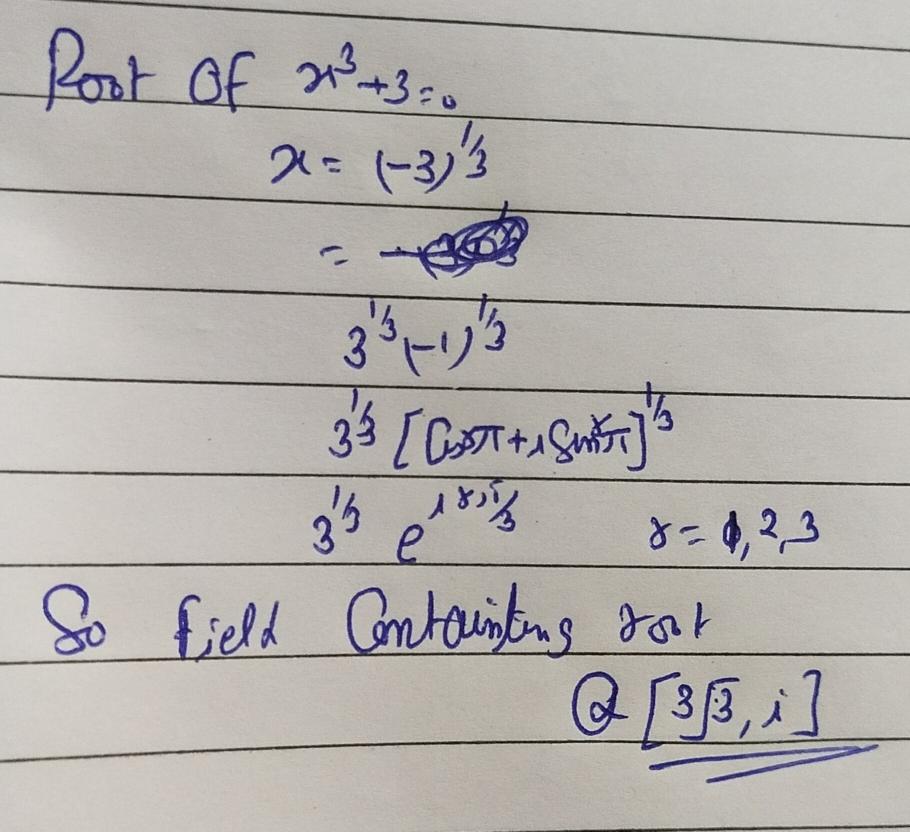 Root Of x³+3=0
x = (-3)^1/3
= -
3^1/3 (-1)^1/3
3^1/3 [Cosπ + i Sinπ]^1/3
3^1/3 e^irπ/3 r = 1, 2, 3
So field Containting root
Q [3√3, i]